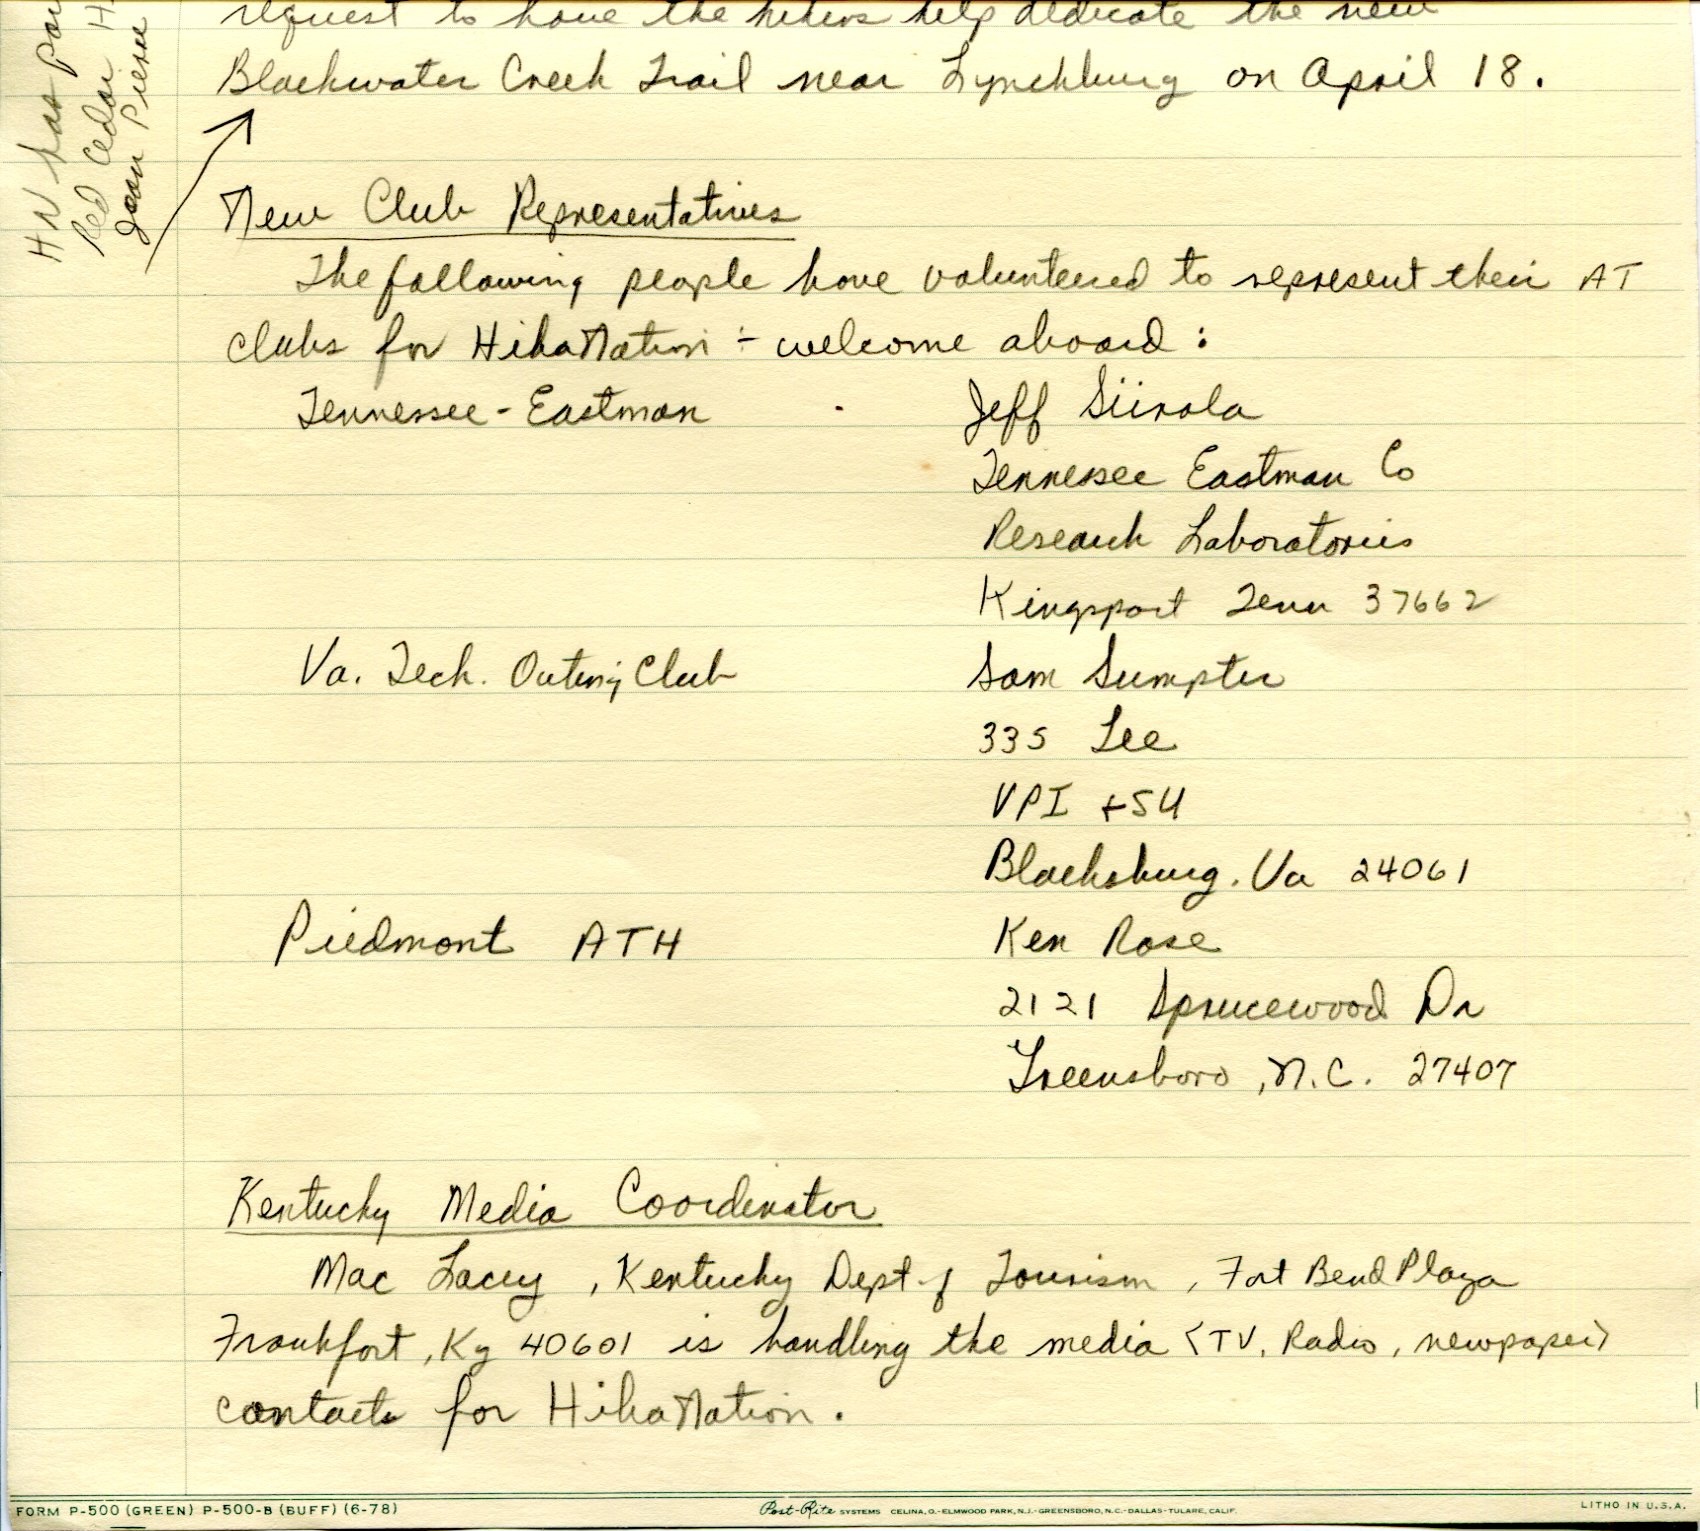 request to have the hikers help dedicate the new
Blackwater Creek Trail near Lynchburg on April 18.
HN has
Red Cedar H
Jean
New Club Representatives
The following people have volunteered to represent their AT
clubs for HikaNation - welcome aboard :
Tennessee - Eastman Jeff Siirola
Tennessee Eastman Co
Research Laboratories
Kingsport Tenn 37662
Va. Tech. Outing Club Sam Sumpter
335 Lee
VPI + SU
Blacksburg. Va 24061
Piedmont ATH Ken Rose
2121 Sprucewood Dr
Greensboro, N.C. 27407
Kentucky Media Coordinator
Mac Lacey, Kentucky Dept. of Tourism, Fort Bend Plaza
Frankfort, Ky 40601 is handling the media (TV, Radio, newpaper)
contacts for HikaNation.
FORM P-500 (GREEN) P-500-B (BUFF) (6-78) Post-Rite SYSTEMS CELINA, O.-ELMWOOD PARK, N.J.-GREENSBORO, N.C.-DALLAS-TULARE, CALIF. LITHO IN U.S.A.